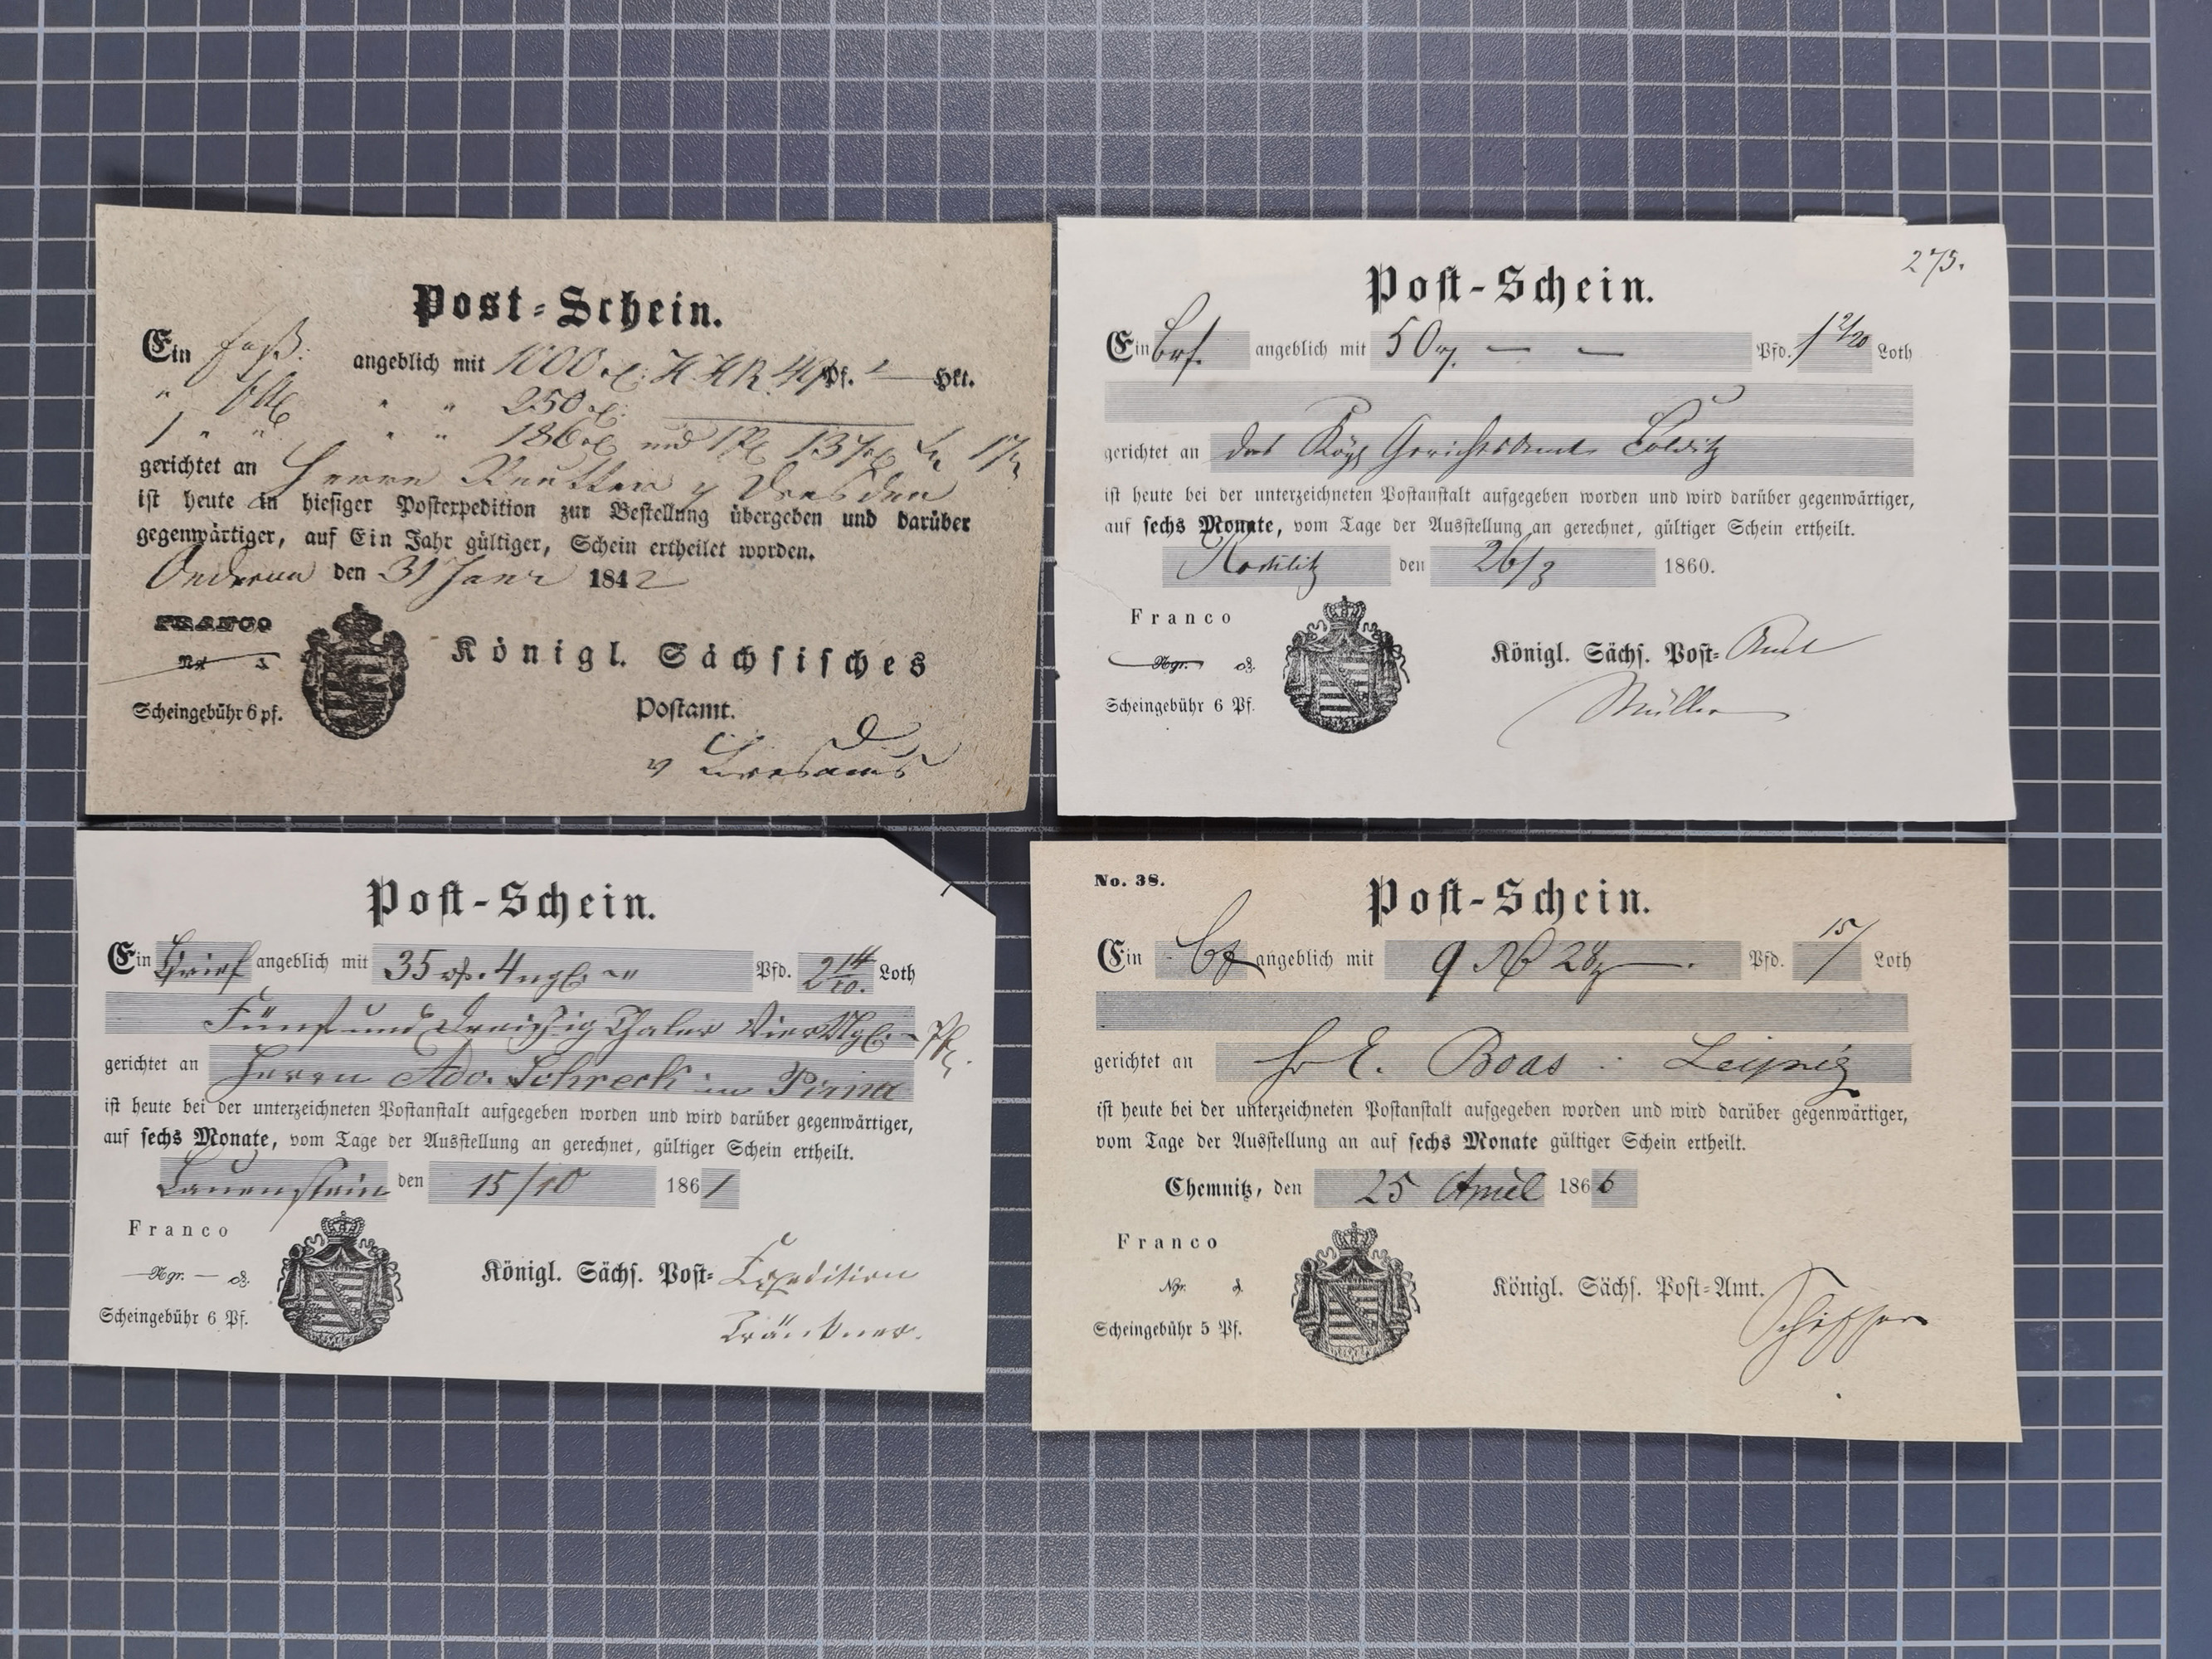 Post-Schein.
Ein Faß: angeblich mit 1000 Pf. Hkt.
" " " 250
1 " " " " 186 und 137
gerichtet an Herrn Dresden
ist heute in hiesiger Postexpedition zur Bestellung übergeben und darüber
gegenwärtiger, auf Ein Jahr gültiger, Schein ertheilet worden.
Oederan den 31 Janr 1842
FRANCO
Scheingebühr 6 pf.
Königl. Sächsisches
Postamt.
Post-Schein.
275.
Ein Brf. angeblich mit 50 — — Pfd. Loth
gerichtet an das Gerichtsamt Colditz
ist heute bei der unterzeichneten Postanstalt aufgegeben worden und wird darüber gegenwärtiger,
auf sechs Monate, vom Tage der Ausstellung an gerechnet, gültiger Schein ertheilt.
Rochlitz den 26/3 1860.
Franco
Ngr. ₰.
Scheingebühr 6 Pf.
Königl. Sächs. Post-Amt
Müller
Post-Schein.
Ein Brief angeblich mit 35 4 ngl. Pfd. 2 14/10. Loth
Fünf und dreißig Thaler Vier Ngl. — Pf.
gerichtet an Herrn Adv. Schreck in Pirna
ist heute bei der unterzeichneten Postanstalt aufgegeben worden und wird darüber gegenwärtiger,
auf sechs Monate, vom Tage der Ausstellung an gerechnet, gültiger Schein ertheilt.
Lauenstein den 15/10 1861
Franco
Ngr. — ₰.
Scheingebühr 6 Pf.
Königl. Sächs. Post-Expedition
Tränkner.
No. 38.
Post-Schein.
Ein Bf angeblich mit 9 28 — Pfd. 15/ Loth
gerichtet an E. Boas : Leipzig
ist heute bei der unterzeichneten Postanstalt aufgegeben worden und wird darüber gegenwärtiger,
vom Tage der Ausstellung an auf sechs Monate gültiger Schein ertheilt.
Chemnitz, den 25 April 1866
Franco
Ngr. ₰.
Scheingebühr 5 Pf.
Königl. Sächs. Post-Amt.